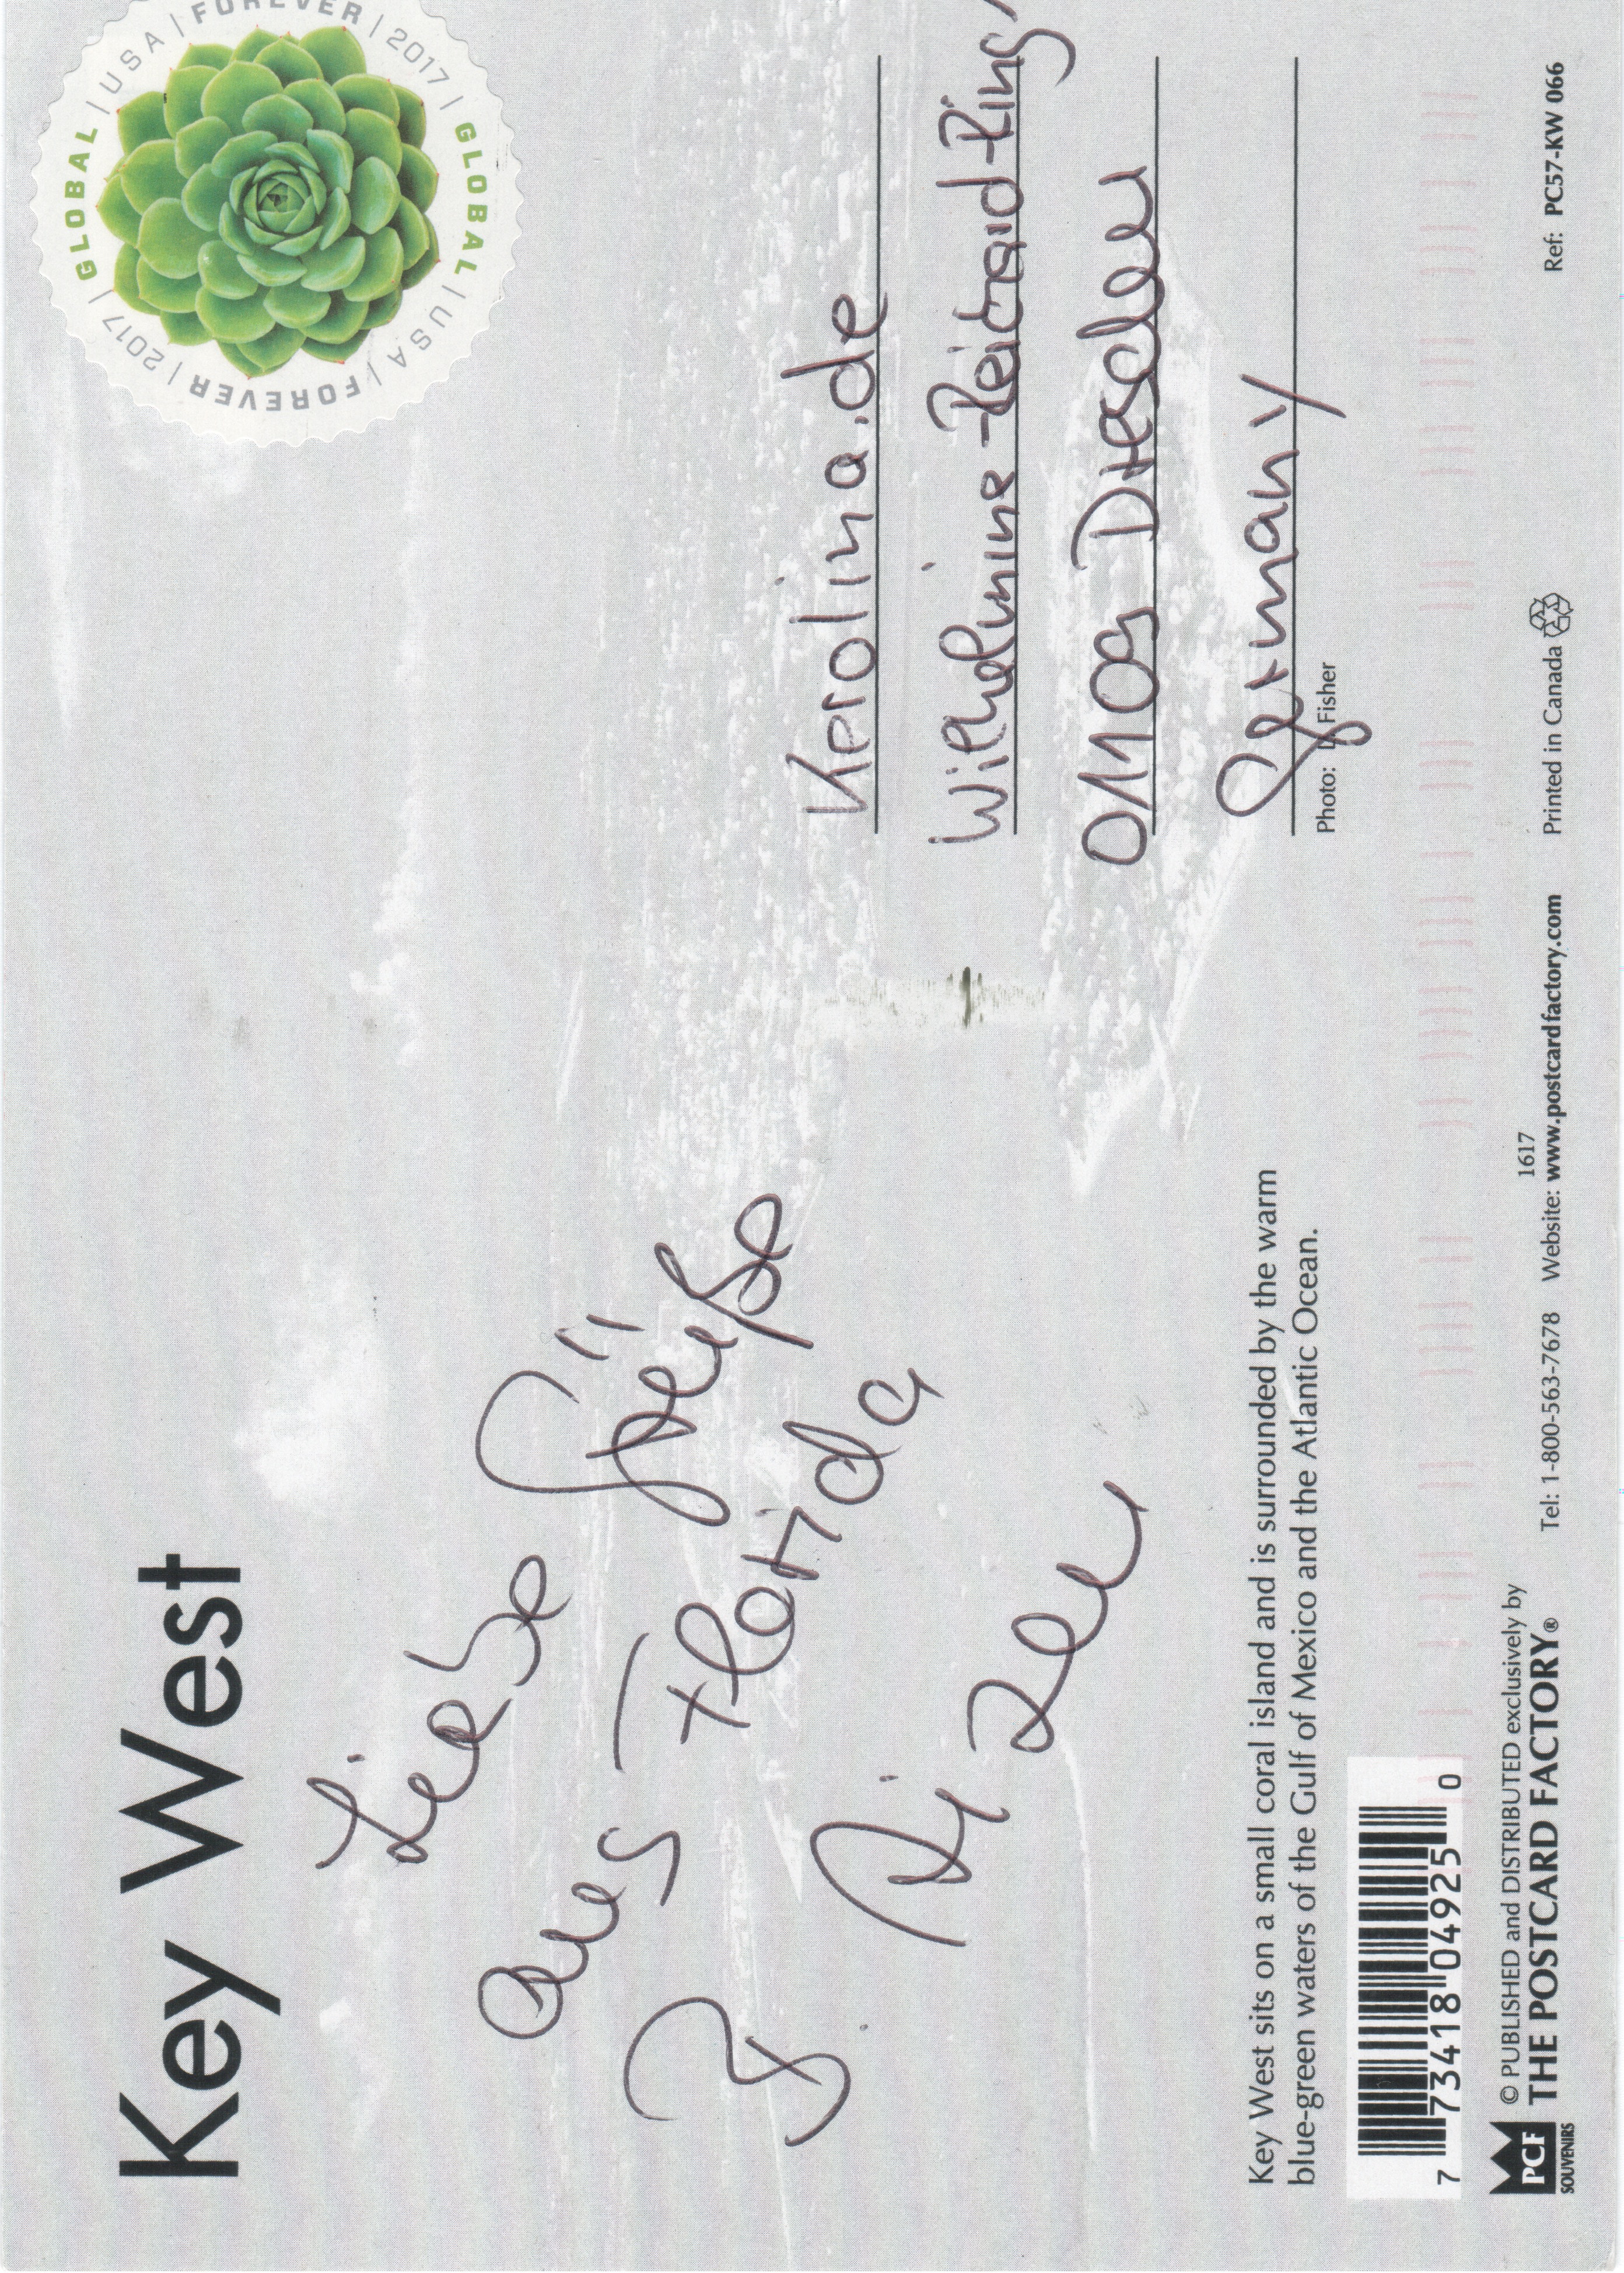 Key West
Liebe Grüße
aus Florida
GLOBAL | USA | FOREVER | 2017 | GLOBAL | USA | FOREVER | 2017 |
Kerolina.de
Wilhelmine-Reichard-Ring
01109 Dresden
Germany
Photo: Fisher
Key West sits on a small coral island and is surrounded by the warm
blue-green waters of the Gulf of Mexico and the Atlantic Ocean.
7 73418 04925 0
PCF
SOUVENIRS
© PUBLISHED and DISTRIBUTED exclusively by
THE POSTCARD FACTORY®
1617
Tel: 1-800-563-7678 Website: www.postcardfactory.com
Printed in Canada
Ref: PC57-KW 066